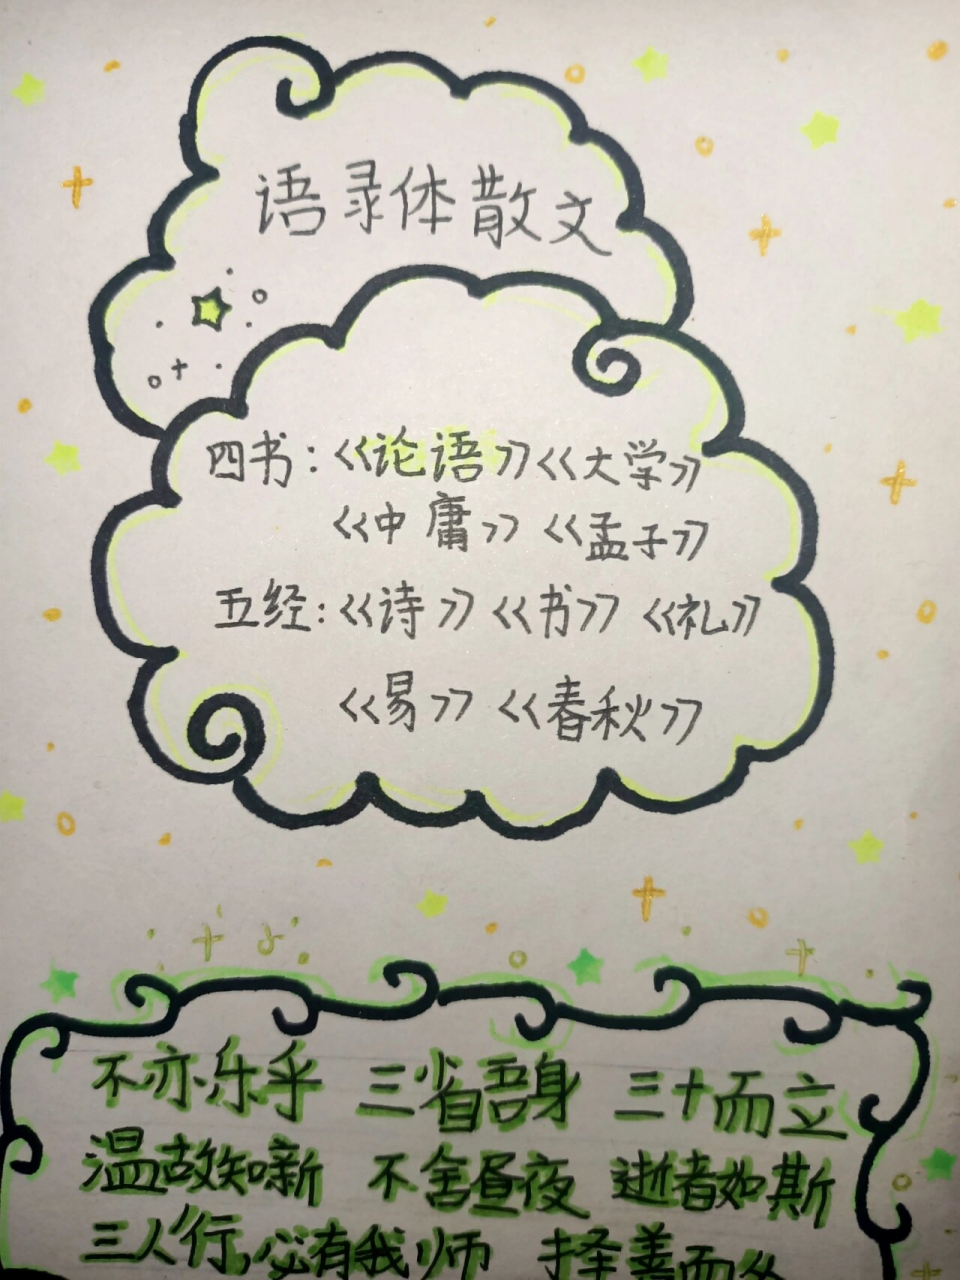 语录体散文
四书:《论语》《大学》
《中庸》《孟子》
五经:《诗》《书》《礼》
《易》《春秋》
不亦乐乎 三省吾身 三十而立
温故知新 不舍昼夜 逝者如斯
三人行,必有我师 择善而从